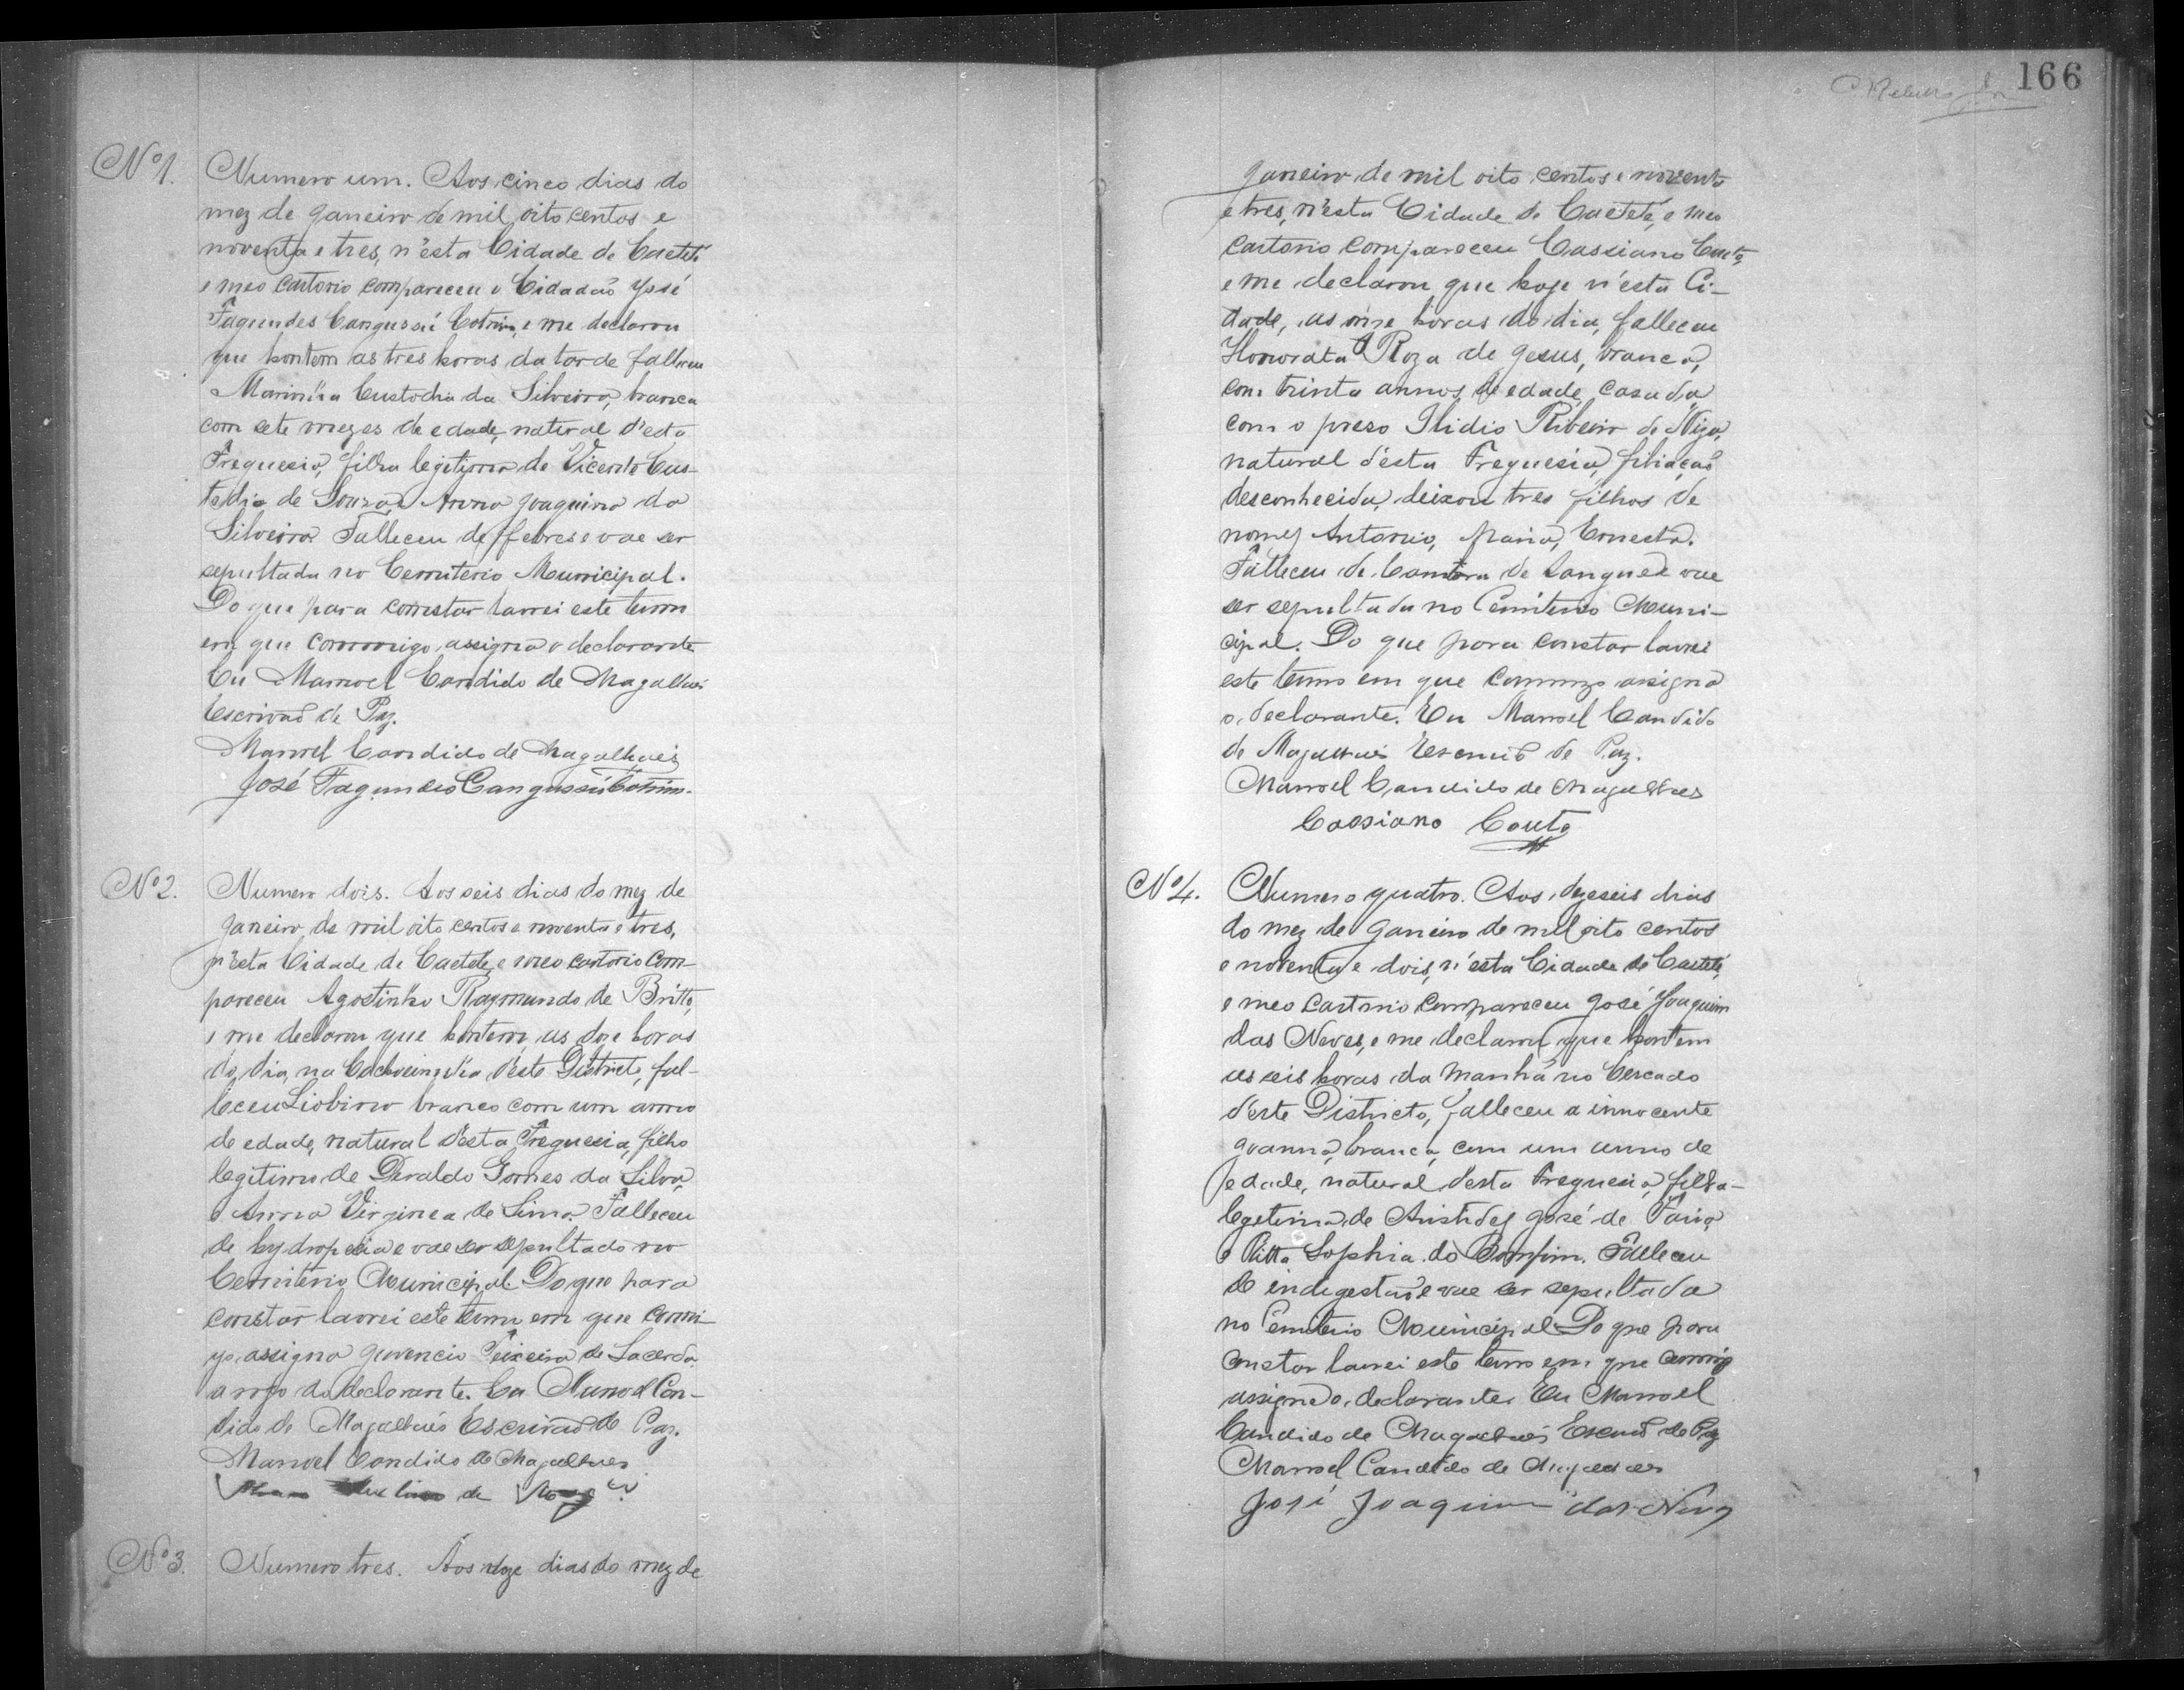 Nº 1. Numero um. Aos cinco dias do
mez de Janeiro de mil oito centos e
noventa e tres, n'esta Cidade de Caetité
e meo Cartorio compareceu o Cidadão José
Fagundes Cangussú Cotrim, e me declarou
que hontem as tres horas da tarde falleceu
Custodia da Silveira, branca
com sete mezes de edade, natural d'esta
Freguesia, filha legitima de Vicente Cus-
todio de Souza, Anna Joaquina da
Silveira. Falleceu de febres e vae ser
sepultada no Cemiterio Municipal.
Do que para constar lavrei este termo
em que commigo assigna o declarante
Eu Manoel Candido de Magalhães
Escrivão de Paz.
Manoel Candido de Magalhães
José Fagundes Cangussú Cotrim.
Nº 2. Numero dois. Aos seis dias do mez de
Janeiro, de mil oito centos e noventa e tres,
n'esta Cidade de Caeteté, e meo cartorio com-
pareceu Agostinho Raymundo de Britto,
e me declarou que hontem, as doze horas
do dia, na d'este Districto, fal-
leceu Liobino branco com um anno
de edade, natural d'esta Freguesia, filho
legitimo de Deraldo Gomes da Silva,
e Anna Virginea de Lima. Falleceu
de hydropesia e vae ser sepultado no
Cemiterio Municipal. Do que para
constar lavrei este termo em que commi-
go assigna Juvencio Teixeira de Lacerda
a rogo do declarante. Eu Manoel Can-
dido de Magalhães Escrivão de Paz.
Manoel Candido de Magalhães
de
Nº 3. Numero tres. Aos doze dias do mez de
166
Janeiro de mil oito centos e noventa
e tres, n'esta Cidade de Caeteté, e meo
Cartorio compareceu Cassiano Couto,
e me declarou que hoje n'esta Ci-
dade, as onze horas do dia, falleceu
Honorata Roza de Jesus, branca,
com trinta annos de edade, casada
com o preso Ilidio Ribeiro de
natural d'esta Freguesia, filiação
desconhecida, deixou tres filhos de
nomes Antonio, Maria, Ernesta.
Falleceu de de Sangue e vae
ser sepultada no Cemiterio Muni-
cipal. Do que para constar lavrei
este termo em que commigo assigna
o declarante. Eu Manoel Candido
de Magalhães Escrivão de Paz.
Manoel Candido de Magalhães
Cassiano Couto
Nº 4. Numero quatro. Aos dezeseis dias
do mez de Janeiro de mil oito centos
e noventa e dois, n'esta Cidade de Caeteté,
e meo Cartorio compareceu José Joaquim
das Neves, e me declarou que hontem
as seis horas da manhã no Cercado
d'este Districto, falleceu a innocente
Joanna, branca, com um anno de
edade, natural d'esta Freguesia, filha
legetima de Aristides José de Faria
e Ritta Sophia do Bomfim. Falleceu
de indigestão e vae ser sepultada
no Cemiterio Municipal. Do que para
constar lavrei este termo em que commigo
assigna o declarante. Eu Manoel
Candido de Magalhães Escrivão de Paz
Manoel Candido de Magalhães
José Joaquim das Neves